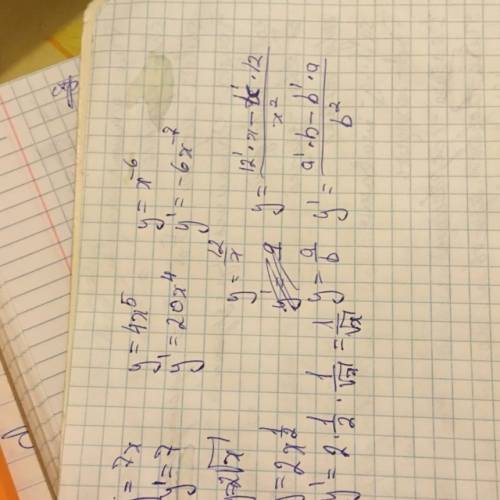 y = 7x
y' = 7
y = 4x⁵
y' = 20x⁴
y = x⁻⁶
y' = -6x⁻⁷
y = 2√x
y = 2x^(1/2)
y' = 2 · 1/2 · 1/√x = 1/√x
y = 12/x
y = a/b
y = (12' · x - x' · 12) / x²
y' = (a' · b - b' · a) / b²